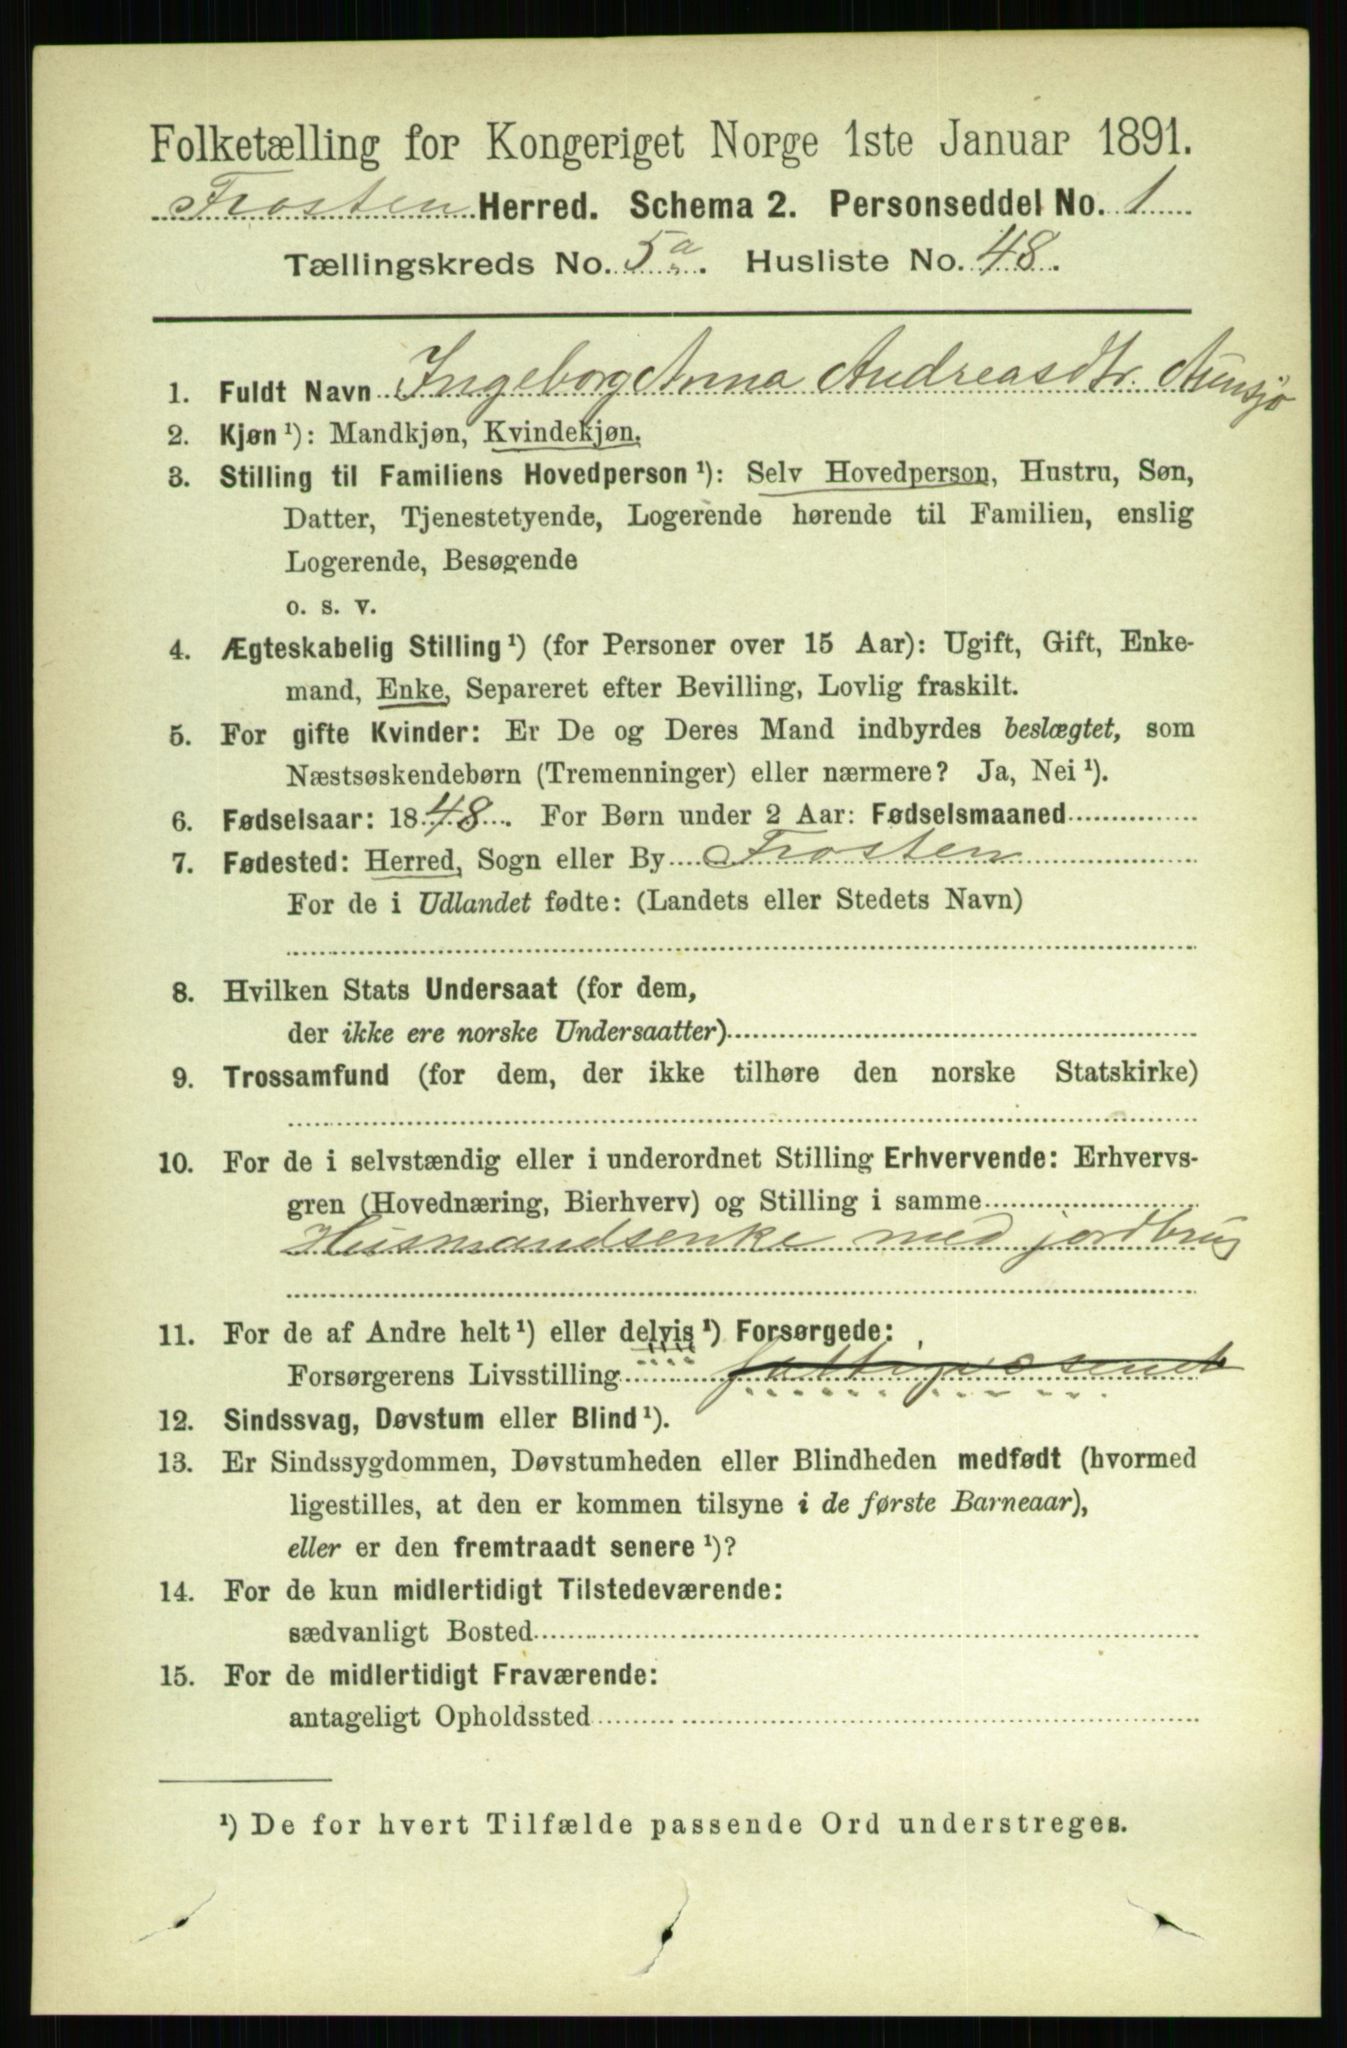 Folketælling for Kongeriget Norge 1ste Januar 1891.
Frosten Herred. Schema 2. Personseddel No. 1
Tællingskreds No. 5a. Husliste No. 48.
1. Fuldt Navn Ingeborg Anna Andreasdtr. Aunsjø
2. Kjøn ¹): Mandkjøn, Kvindekjøn.
3. Stilling til Familiens Hovedperson ¹): Selv Hovedperson, Hustru, Søn,
Datter, Tjenestetyende, Logerende hørende til Familien, enslig
Logerende, Besøgende
o. s. v.
4. Ægteskabelig Stilling ¹) (for Personer over 15 Aar): Ugift, Gift, Enke-
mand, Enke, Separeret efter Bevilling, Lovlig fraskilt.
5. For gifte Kvinder: Er De og Deres Mand indbyrdes beslægtet, som
Næstsøskendebørn (Tremenninger) eller nærmere? Ja, Nei ¹).
6. Fødselsaar: 1848. For Børn under 2 Aar: Fødselsmaaned
7. Fødested: Herred, Sogn eller By Frosten
For de i Udlandet fødte: (Landets eller Stedets Navn)
8. Hvilken Stats Undersaat (for dem,
der ikke ere norske Undersaatter)
9. Trossamfund (for dem, der ikke tilhøre den norske Statskirke)
10. For de i selvstændig eller i underordnet Stilling Erhvervende: Erhvervs-
gren (Hovednæring, Bierhverv) og Stilling i samme
Husmandsenke med jordbrug
11. For de af Andre helt ¹) eller delvis ¹) Forsørgede:
Forsørgerens Livsstilling fattigvæsenet
12. Sindssvag, Døvstum eller Blind ¹).
13. Er Sindssygdommen, Døvstumheden eller Blindheden medfødt (hvormed
ligestilles, at den er kommen tilsyne i de første Barneaar),
eller er den fremtraadt senere ¹)?
14. For de kun midlertidigt Tilstedeværende:
sædvanligt Bosted
15. For de midlertidigt Fraværende:
antageligt Opholdssted
¹) De for hvert Tilfælde passende Ord understreges.